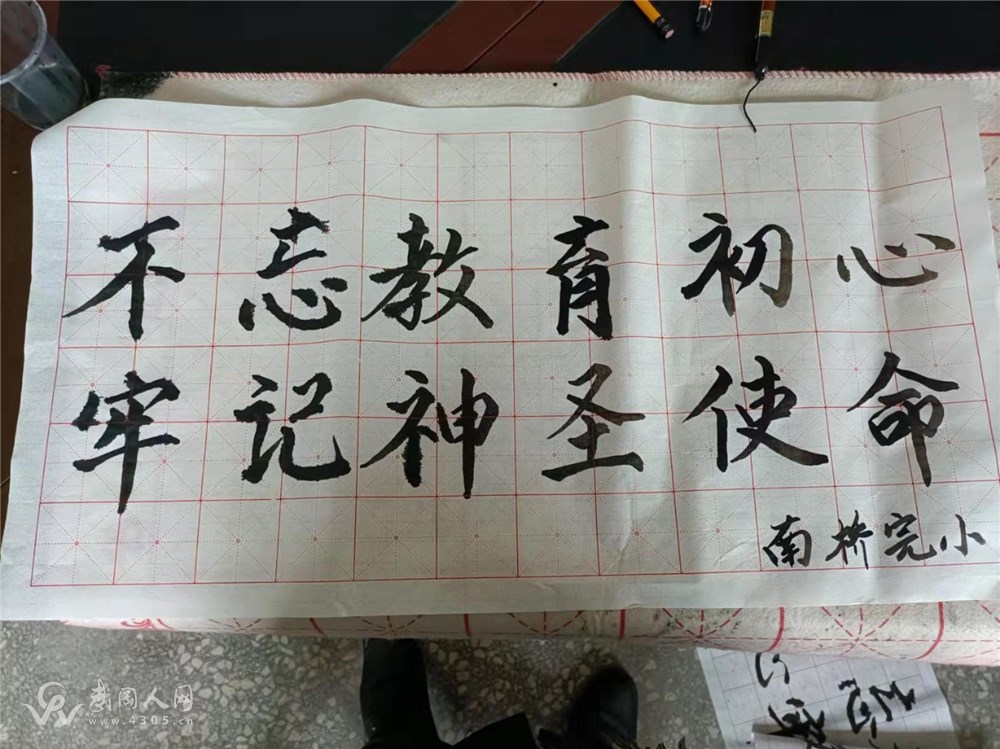 不忘教育初心
牢记神圣使命
南桥完小
武冈人网
www.4305.cn